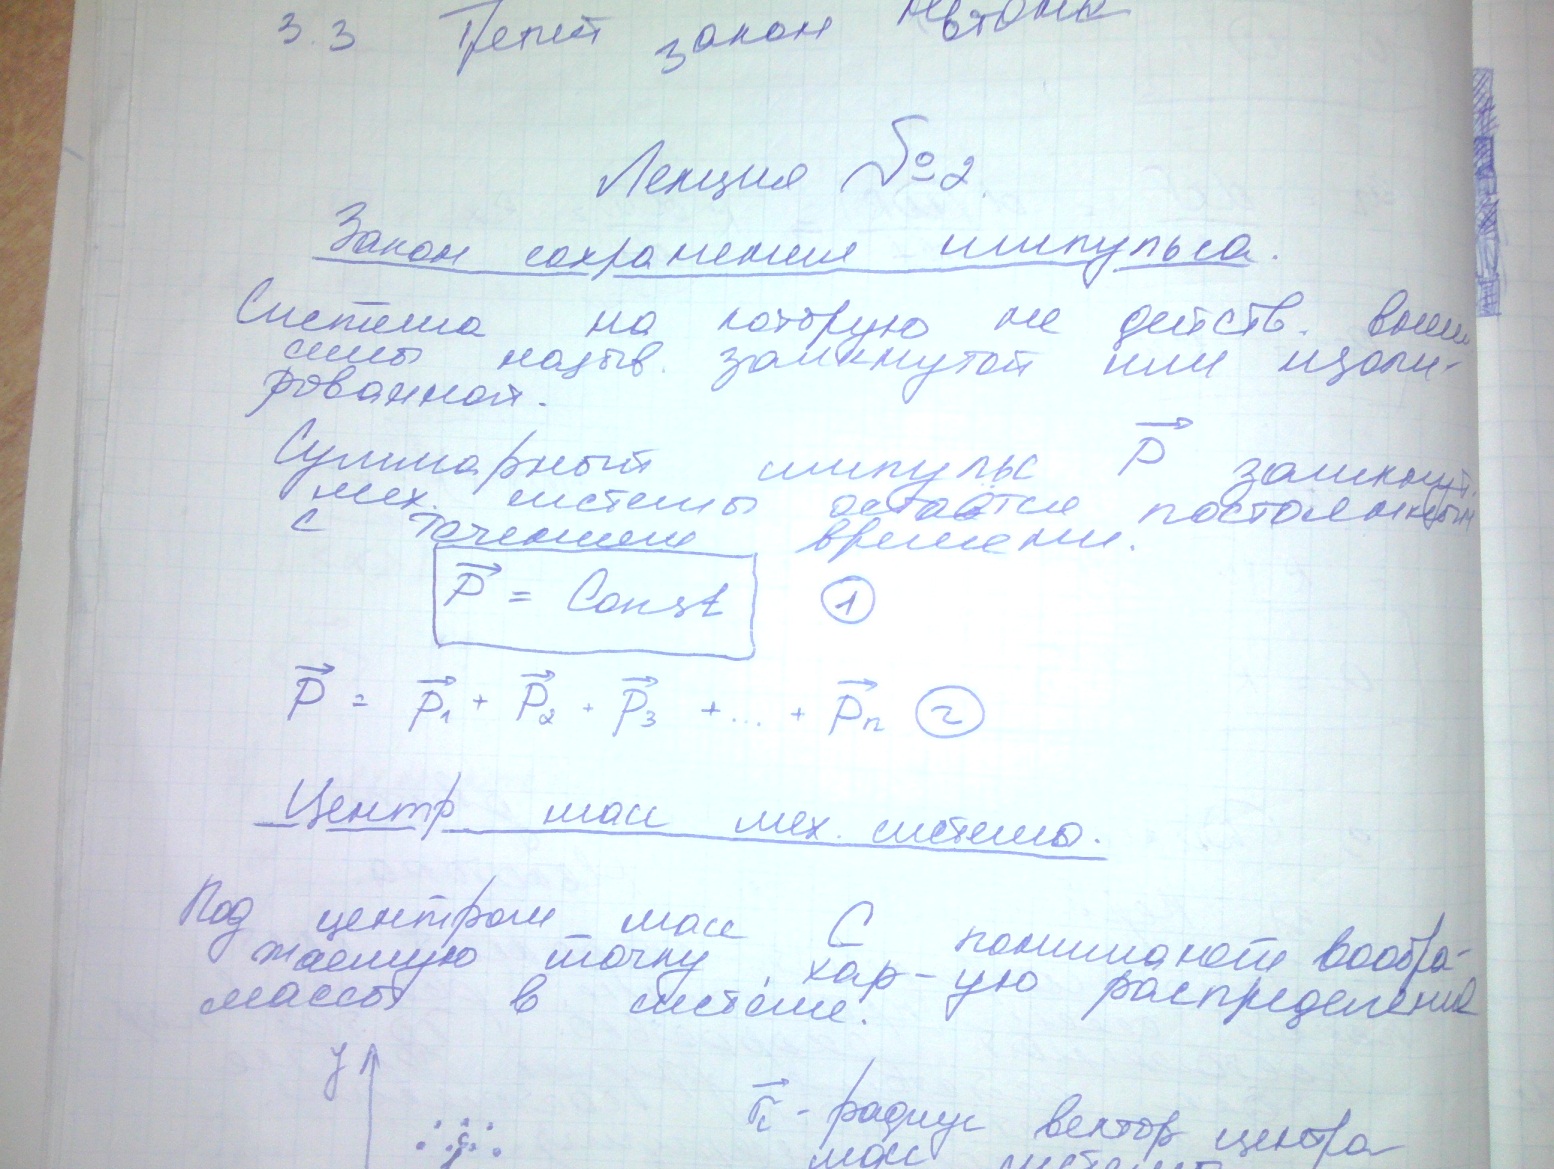 3.3 Третий закон Ньютона
Лекция №2
Закон сохранения импульса.
Система на которую не действ. внеш.
силы назыв. замкнутой или изоли-
рованной.
Суммарный импульс P⃗ замкнут.
мех. системы остаётся постоянным
с течением времени.
P⃗ = Const ①
P⃗ = P⃗₁ + P⃗₂ + P⃗₃ + ... + P⃗n ②
Центр масс мех. системы.
Под центром масс C понимают вообра-
жаемую точку, хар-ую распределения
массы в системе.
y
r⃗c - радиус вектор центра
масс системы